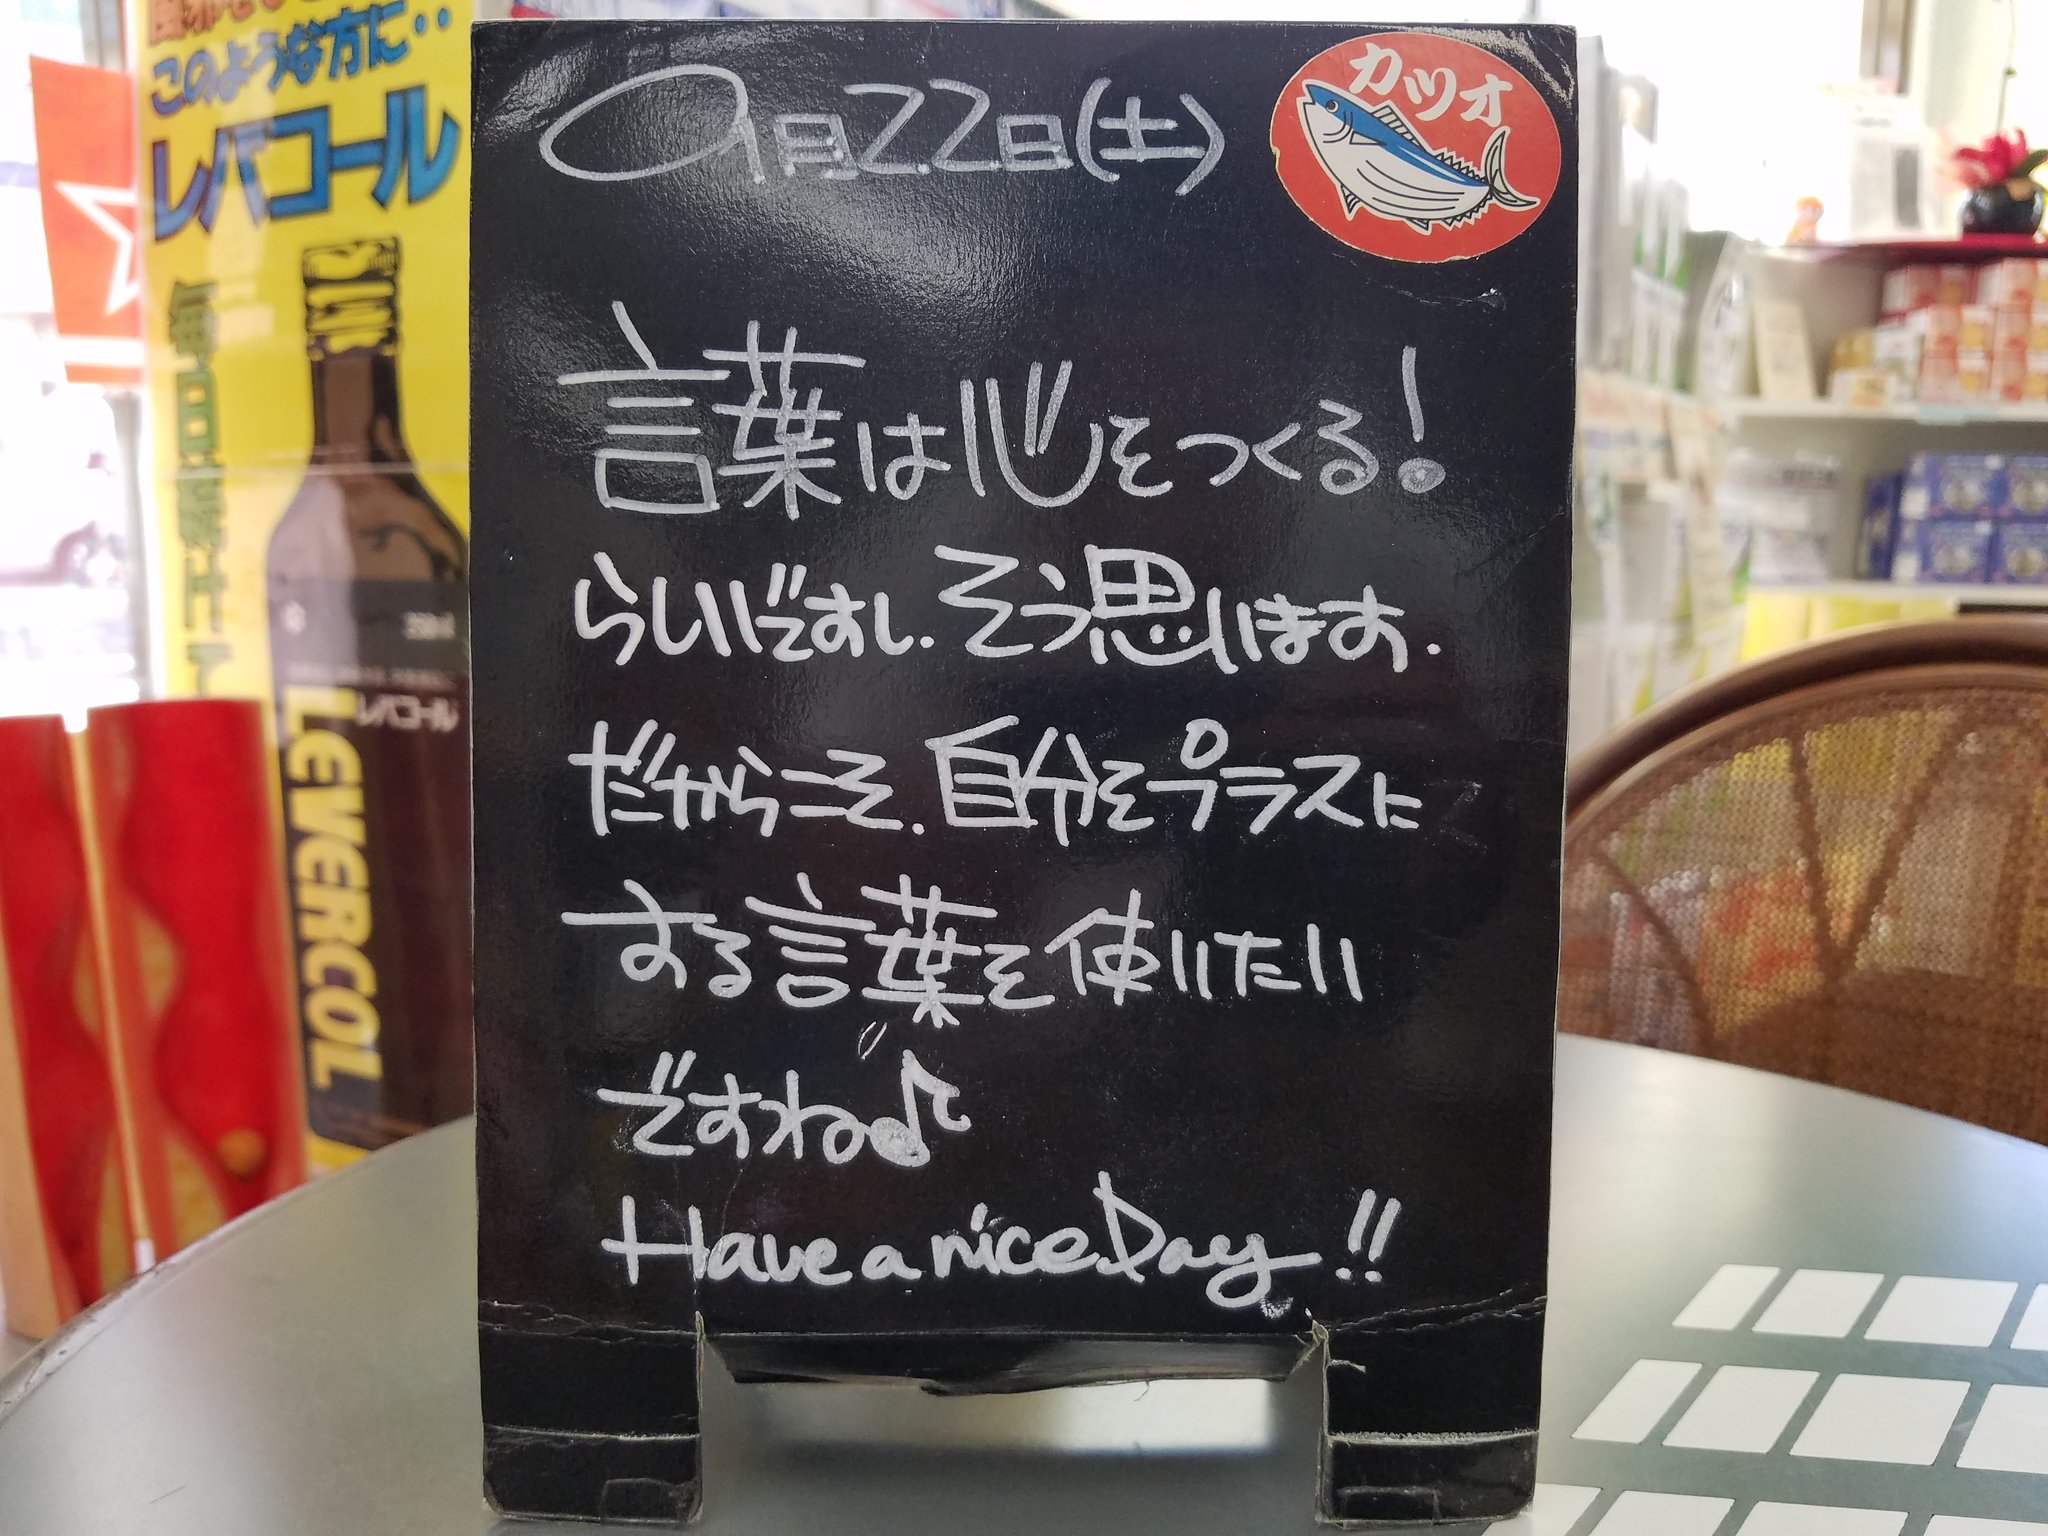 このような方に・・
レバコール
250ml
レバコール
LEVERCOL
9月22日(土)
カツオ
言葉は心をつくる!
らしいですし.そう思います.
だからこそ.自分をプラスに
する言葉を使いたい
ですね♪
Have a nice Day!!